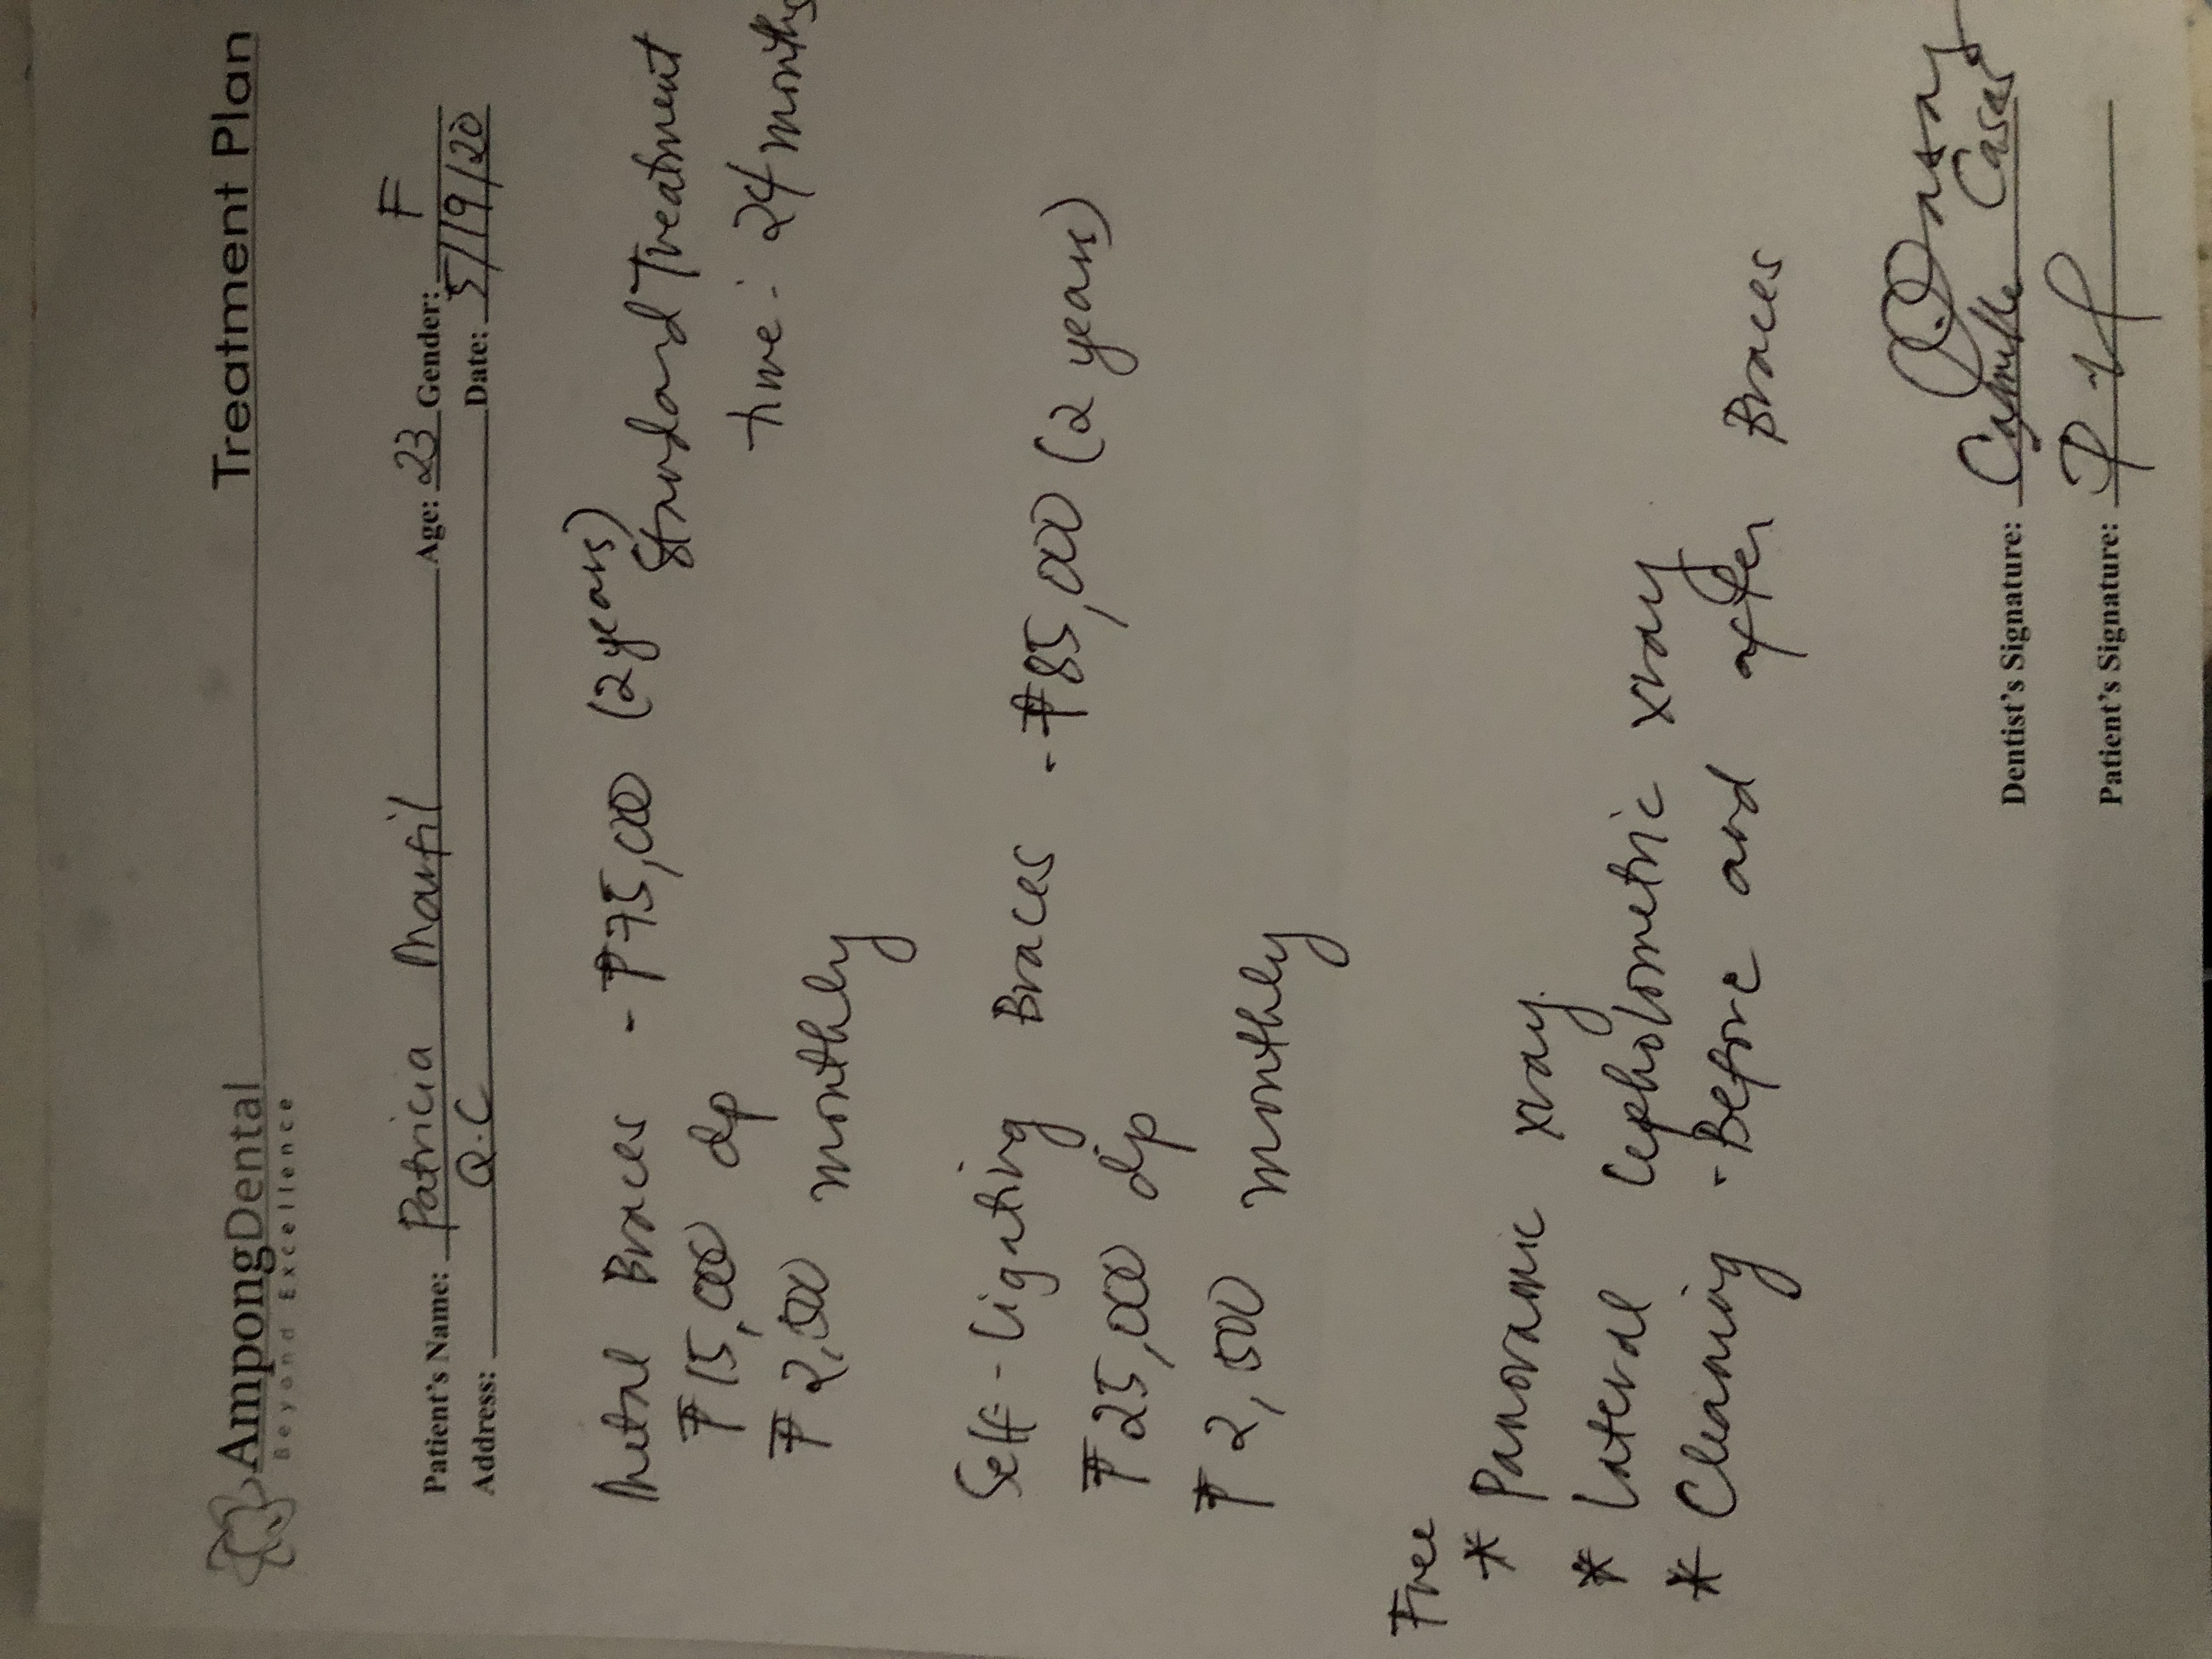 AmpongDental
Beyond Excellence
Treatment Plan
Patient's Name: Patricia Marfil Age: 23 Gender: F
Address: Q.C Date: 5/19/20
Metal Braces - ₱75,000 (2 years)
Standard Treatment
time: 24 months
₱15,000 dp
₱2,500 monthly
Self-ligating Braces - ₱85,000 (2 years)
₱25,000 dp
₱2,500 monthly
Free
* Panoramic xray.
* Lateral Cepholometric xray
* Cleaning - Before and after Braces
Dentist's Signature: Camille Casas
Patient's Signature: